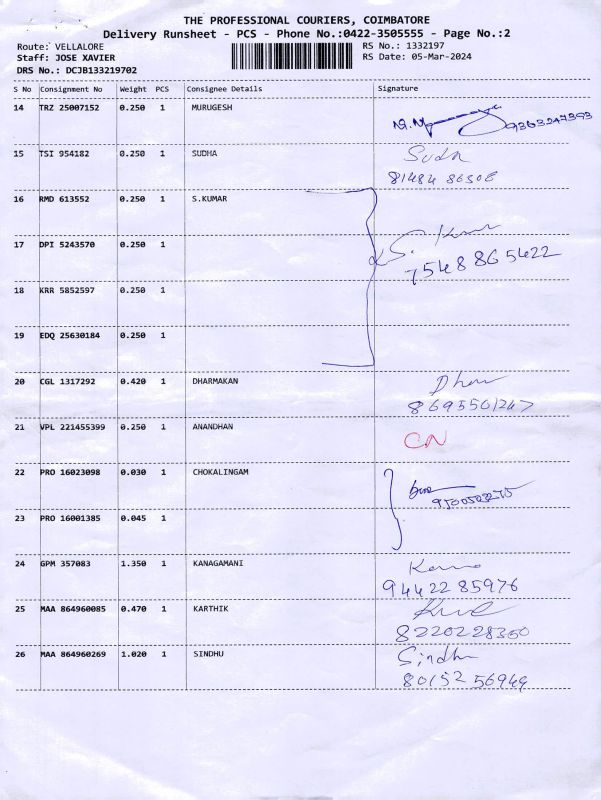 THE PROFESSIONAL COURIERS, COIMBATORE
Delivery Runsheet - PCS - Phone No.:0422-3505555 - Page No.:2
Route: VELLALORE RS No.: 1332197
Staff: JOSE XAVIER RS Date: 05-Mar-2024
DRS No.: DCJB133219702
S No Consignment No Weight PCS Consignee Details Signature
14 TRZ 25007152 0.250 1 MURUGESH
9363247393
15 TSI 954182 0.250 1 SUDHA Sudh
81484 86508
16 RMD 613552 0.250 1 S.KUMAR
17 DPI 5243570 0.250 1 S. Kumar
7548865422
18 KRR 5852597 0.250 1
19 EDQ 25630184 0.250 1
20 CGL 1317292 0.420 1 DHARMAKAN
8695561247
21 VPL 221455399 0.250 1 ANANDHAN CN
22 PRO 16023098 0.030 1 CHOKALINGAM
23 PRO 16001385 0.045 1
24 GPM 357083 1.350 1 KANAGAMANI
94422 85976
25 MAA 864960085 0.470 1 KARTHIK
8220228360
26 MAA 864960269 1.020 1 SINDHU Sindhu
80152 56949